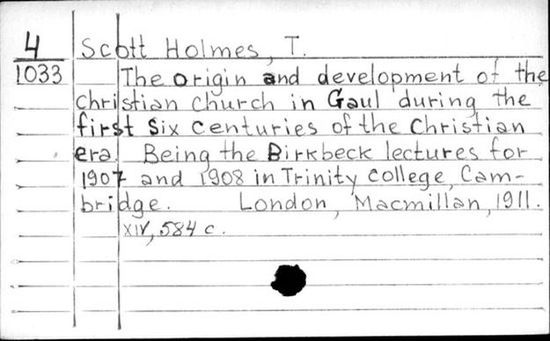 4 Scott Holmes, T.
1033 The origin and development of the
Christian church in Gaul during the
first six centuries of the Christian
era. Being the Birkbeck lectures for
1907 and 1908 in Trinity college, Cam-
bridge. London, Macmillan, 1911.
XIV, 584 c.